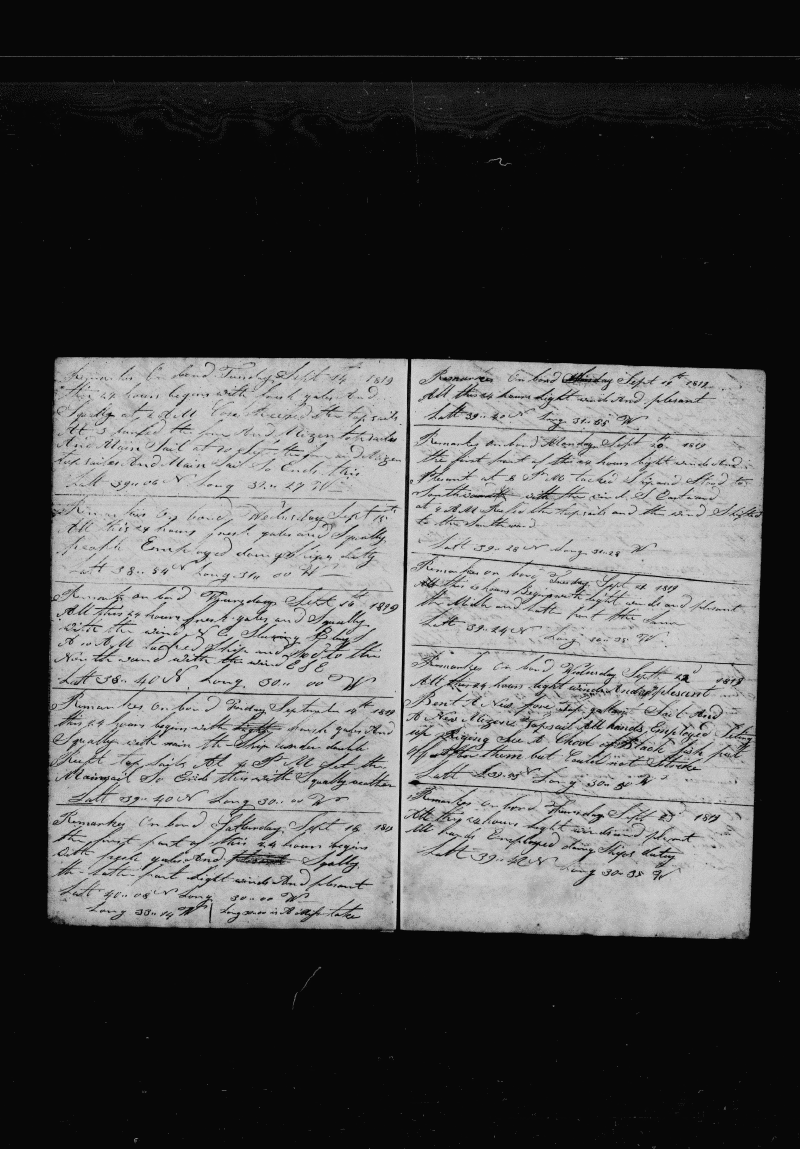 Remarks On bord Tuesday Sept 14th 1819
this 24 hours begins with fresh gales And
Squaly at 2 AM Close Reeved the top sails
At 3 furled the fore And Mizen top sailes
And Main Sail at 10 Set the fore and Mizen
top sailes And Main Sail So Ends this
Latt 39.. 06 N Long 31.. 27 W
Remarks on bord Wedusday Sept 15
All this 24 hours fresh gales and Squaly
people Employed doing Ships duty
Latt 38.. 54 N Long 31.. 00 W
Remarks on bord Thursday Sept 16th 1819
All this 24 hours fresh gales and Squally
with the wind
A AM tacked Ship and Stood to this
Nor ward with the wind ESE
Latt 38.. 40 N Long 30.. 00 W
Remarkes On bord Friday September 17th 1819
this 24 hours begins with fresh gales And
Squaly with rain the Ship under double
Reeft top sails At 4 P M got the
Mainsail So Ends this with Squally weather
Latt 39.. 40 N Long 30.. 00 W
Remarkes On bord Satturday Sept 18 1819
the first part of this 24 hours begins
with fresh gales And Squally
the latt part light winds And plesant
Latt 40.. 08 N Long 30.. 00 W
Long 33.. 14 W Long is A Misstake
Remarkes On bord Sept 19th 1819
All this 24 hours light winds And plesant
Latt 39.. 40 N Long 31.. 55 W
Remarks on bord Monday Sept 20 1819
the first part of this 24 hours light winds And
plesant at 8 P M tacked Ship and Stood to
Southward with the wind S Eastward
at 8 AM the topsails and the wind Shifted
to the Southward
Latt 39.. 28 N Long 31.. 28 W
Remarkes on bord Tuesday Sept 21 1819
All this 24 hours Begins with light winds and plesant
the Midle and latt part the Same
Latt 39.. 24 N Long 30.. 35 W
Remarkes On bord Wedusday Sept 22d 1819
All this 24 hours light winds And plesant
Bent A New fore top gallant Sail And
A New Mizene Topsail All hands Employed Seting
up Riging See A Choole of Black fish put
off After them but Could not Strike
Latt 39.. 35 N Long 30.. 50 W
Remarkes On bord Thursday Sept 23d 1819
All this 24 hours light winds and plesant
All hands Employed doing Ships duty
Latt 39.. 42 N Long 30.. 35 W